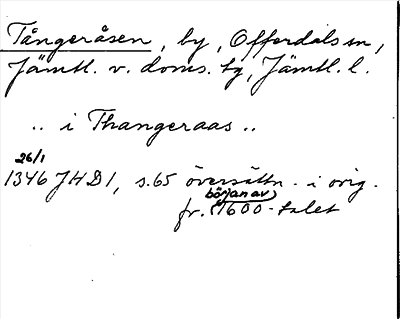 Tångeråsen, by, Offerdals sn,
Jämtl. v. doms. tg, Jämtl. l.
.. i Thangeraas ..
26/1
1346 JHD 1, s. 65 översättn. i orig.
början av
fr. 1600-talet